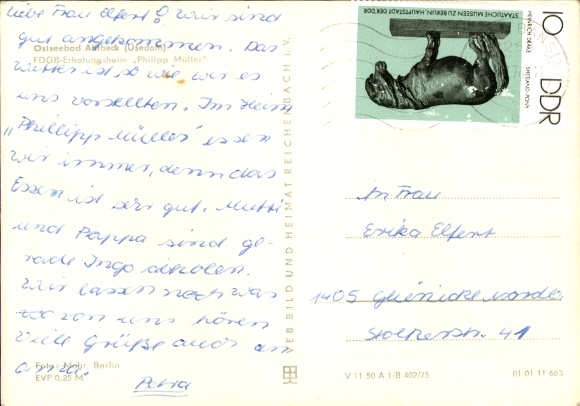 Liebe Frau Elfert! Wir sind
gut angekommen. Das
Wetter ist so wie wir es
uns vorstellten. Im Heim
„Phillipp Müller" essen
wir immer, denn das
Essen ist sehr gut. Mutti
und Pappa sind ge-
rade Ingo abholen.
Wir lassen noch was
von uns hören
Viele Grüße auch an
Petra
Ostseebad Ahlbeck (Usedom)
FDGB-Erholungsheim „Philipp Müller"
Foto: Mohr, Berlin
EVP 0,25 M
VEB BILD UND HEIMAT REICHENBACH i. V.
STAATLICHE MUSEEN ZU BERLIN, HAUPTSTADT DER DDR
HEINRICH DRAKE
SHETLAND-PONY
10
DDR
An Frau
Erika Elfert
1405 Glienicke Nordb.
Stolperstr. 41
V 11 50 A 1/B 402/75
01 01 11 663